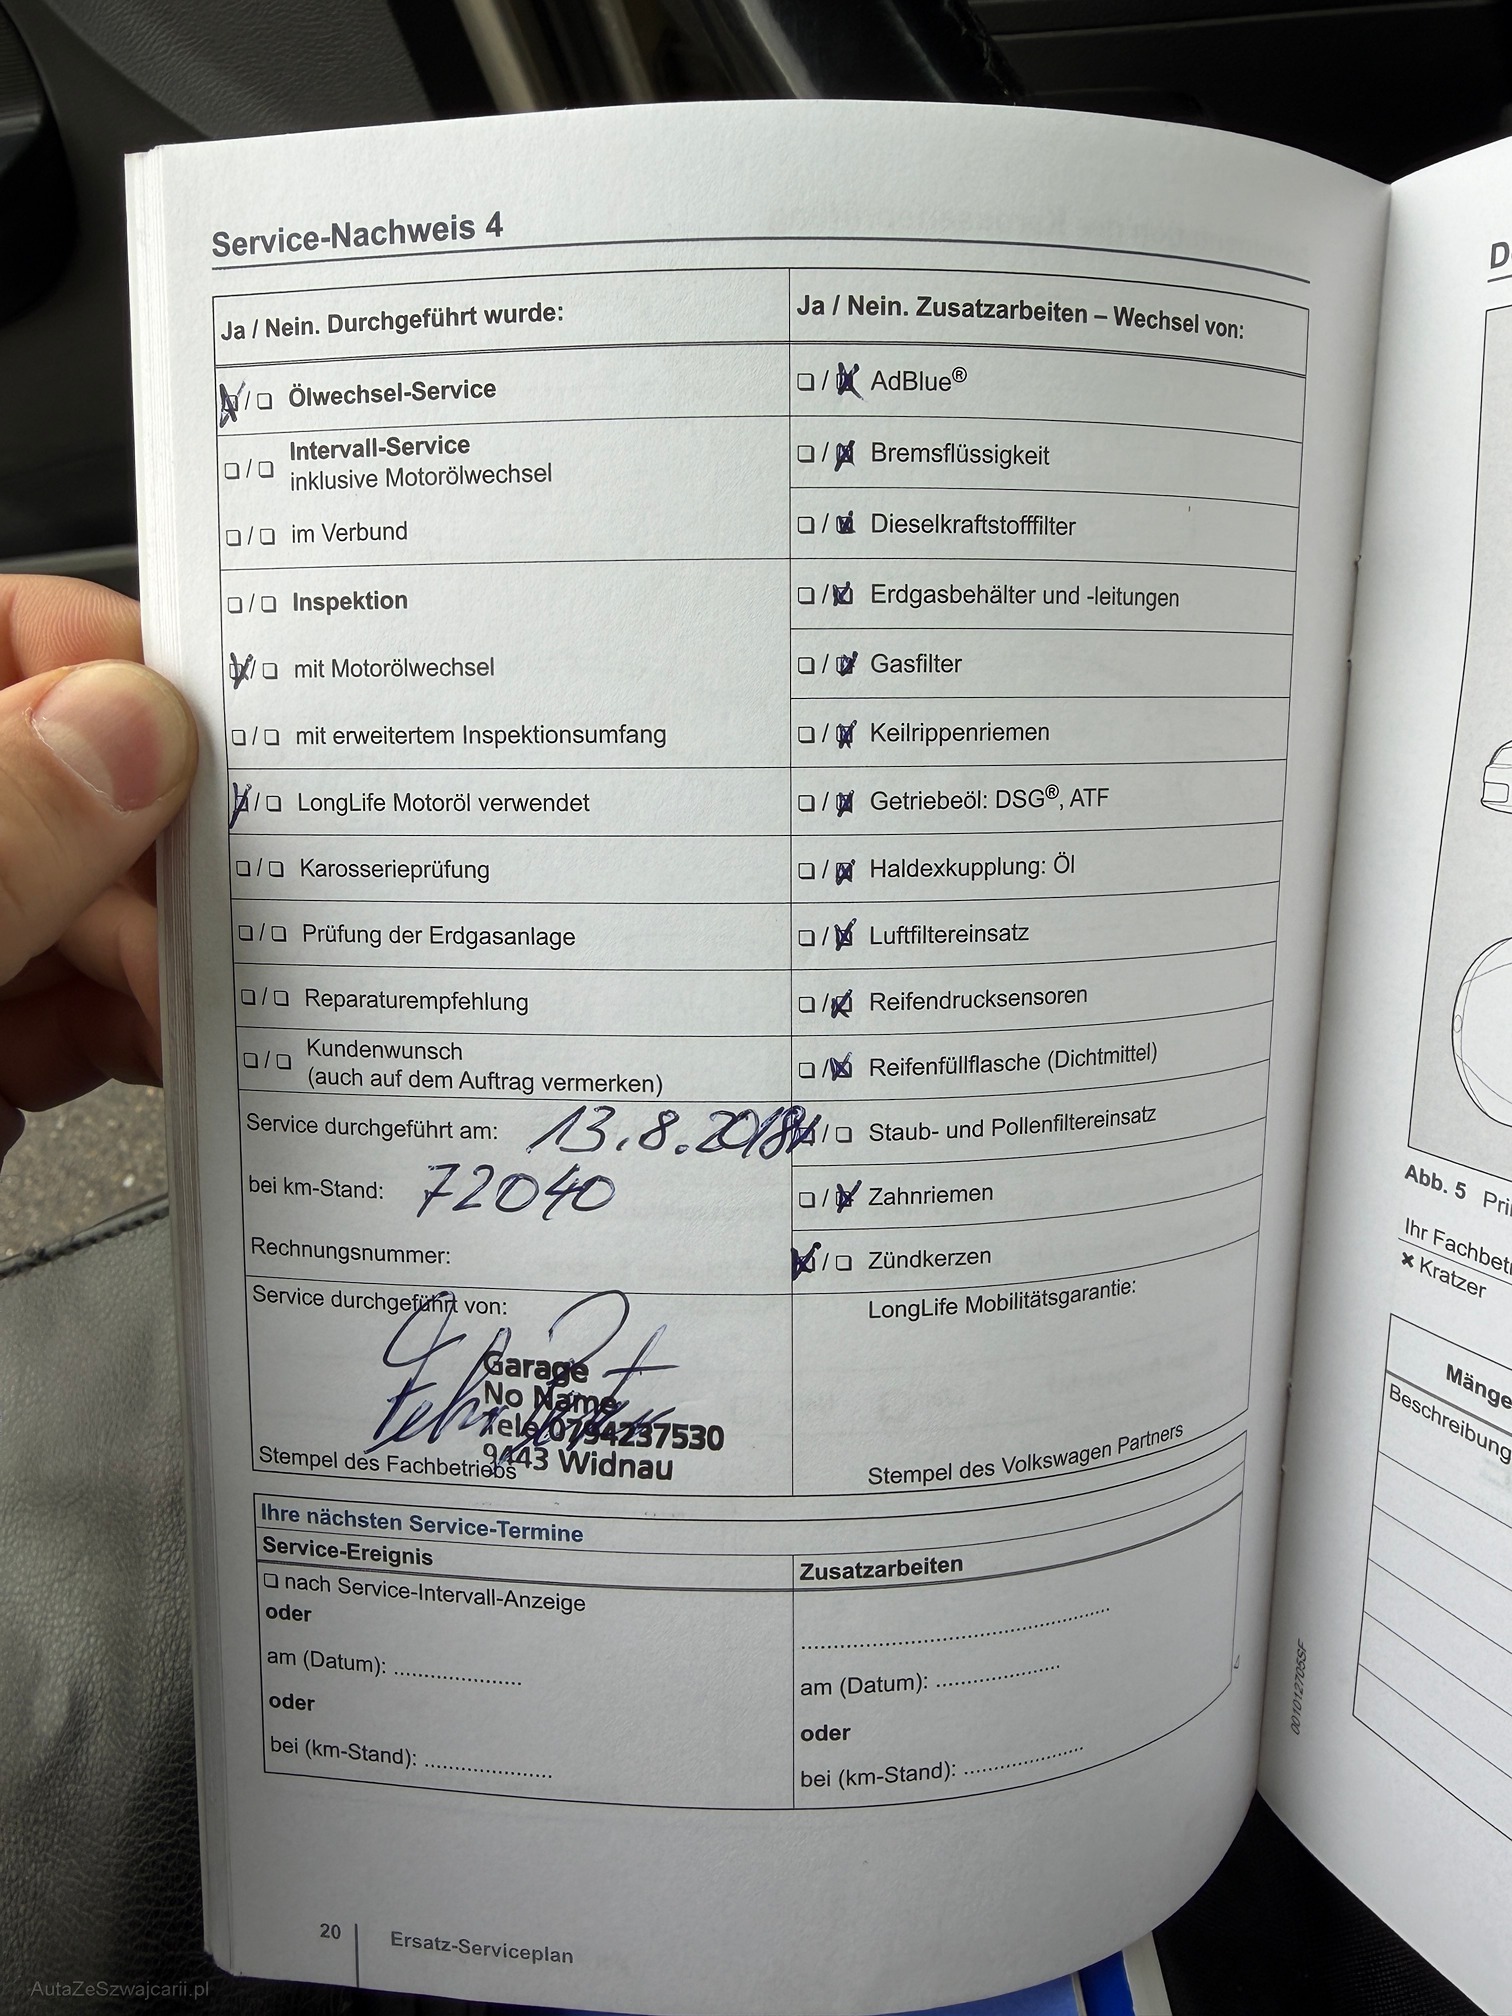 Service-Nachweis 4
Ja / Nein. Durchgeführt wurde:
❏ / ❏ Ölwechsel-Service
❏ / ❏ Intervall-Service
inklusive Motorölwechsel
❏ / ❏ im Verbund
❏ / ❏ Inspektion
❏ / ❏ mit Motorölwechsel
❏ / ❏ mit erweitertem Inspektionsumfang
❏ / ❏ LongLife Motoröl verwendet
❏ / ❏ Karosserieprüfung
❏ / ❏ Prüfung der Erdgasanlage
❏ / ❏ Reparaturempfehlung
❏ / ❏ Kundenwunsch
(auch auf dem Auftrag vermerken)
Service durchgeführt am: 13.8.2018
bei km-Stand: 72040
Rechnungsnummer:
Service durchgeführt von:
Garage
No Name
Tele 0794237530
9443 Widnau
Stempel des Fachbetriebs
Ja / Nein. Zusatzarbeiten – Wechsel von:
❏ / ❏ AdBlue®
❏ / ❏ Bremsflüssigkeit
❏ / ❏ Dieselkraftstofffilter
❏ / ❏ Erdgasbehälter und -leitungen
❏ / ❏ Gasfilter
❏ / ❏ Keilrippenriemen
❏ / ❏ Getriebeöl: DSG®, ATF
❏ / ❏ Haldexkupplung: Öl
❏ / ❏ Luftfiltereinsatz
❏ / ❏ Reifendrucksensoren
❏ / ❏ Reifenfüllflasche (Dichtmittel)
❏ / ❏ Staub- und Pollenfiltereinsatz
❏ / ❏ Zahnriemen
❏ / ❏ Zündkerzen
LongLife Mobilitätsgarantie:
Stempel des Volkswagen Partners
Ihre nächsten Service-Termine
Service-Ereignis
❏ nach Service-Intervall-Anzeige
oder
am (Datum): ....................
oder
bei (km-Stand): ....................
Zusatzarbeiten
..................................................
am (Datum): ....................
oder
bei (km-Stand): ....................
20 Ersatz-Serviceplan
001012705SF
Abb. 5
Ihr
✖ Kratzer
AutaZeSzwajcarii.pl